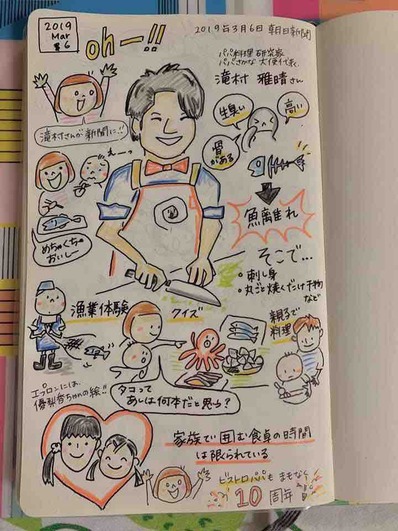 2019
Mar
6
oh—!!
2019年3月6日 朝日新聞
パパ料理研究家
滝村 雅晴さん
滝村さんが新聞に!!
生臭い
高い
骨がある
えーっ
めちゃくちゃ
おいしー
魚離れ
そこで…
・刺し身
・丸ごと焼くだけ干物
など
漁業体験
クイズ
親子で
料理
エプロンには、
優梨香ちゃんの絵!!
タコって
あしは何本だと思う?
家族で囲む食卓の時間
は限られている
ビストロパパも まもなく
10周年